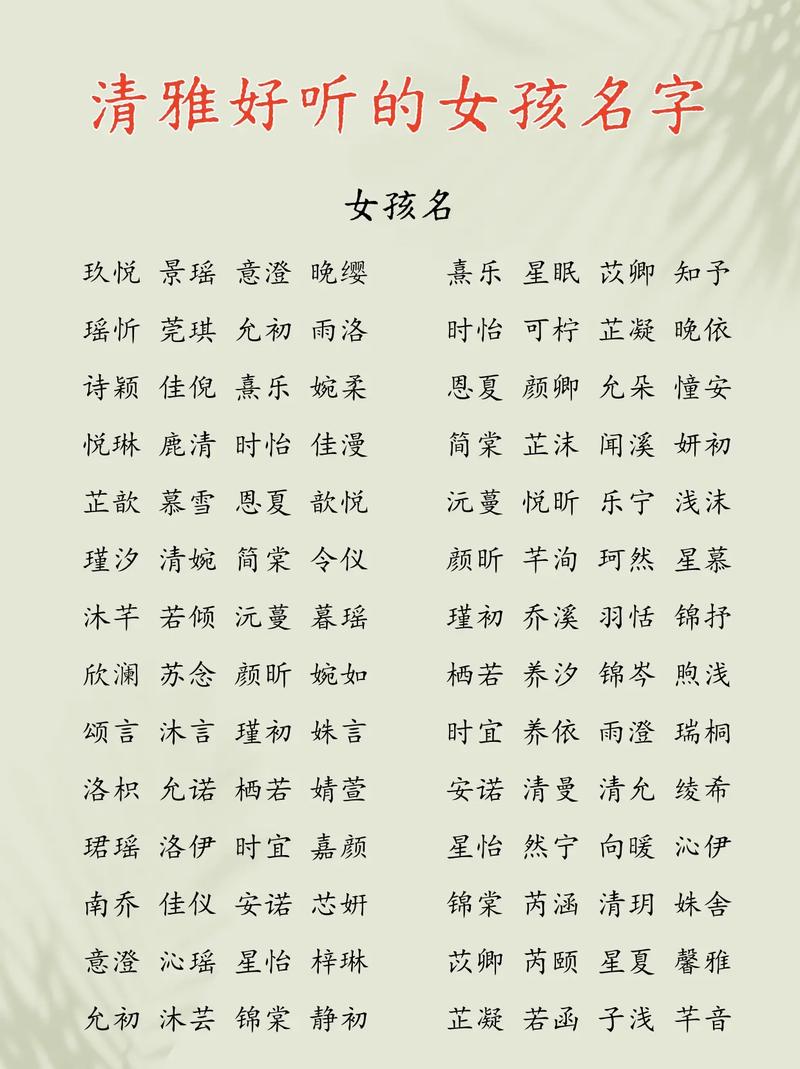 清雅好听的女孩名字
女孩名
玖悦 景瑶 意澄 晚缨 熹乐 星眠 苡卿 知予
瑶忻 莞琪 允初 雨洛 时怡 可柠 芷凝 晚依
诗颖 佳倪 熹乐 婉柔 恩夏 颜卿 允朵 憧安
悦琳 鹿清 时怡 佳漫 简棠 芷沫 闻溪 妍初
芷歆 慕雪 恩夏 歆悦 沅蔓 悦昕 乐宁 浅沫
瑾汐 清婉 简棠 令仪 颜昕 芊洵 珂然 星慕
沐芊 若倾 沅蔓 暮瑶 瑾初 乔溪 羽恬 锦抒
欣澜 苏念 颜昕 婉如 栖若 养汐 锦岑 煦浅
颂言 沐言 瑾初 姝言 时宜 养依 雨澄 瑞桐
洛枳 允诺 栖若 婧萱 安诺 清曼 清允 绫希
珺瑶 洛伊 时宜 嘉颜 星怡 然宁 向暖 沁伊
南乔 佳仪 安诺 芯妍 锦棠 芮涵 清玥 姝舍
意澄 沁瑶 星怡 梓琳 苡卿 芮颐 星夏 馨雅
允初 沐芸 锦棠 静初 芷凝 若函 子浅 芊音